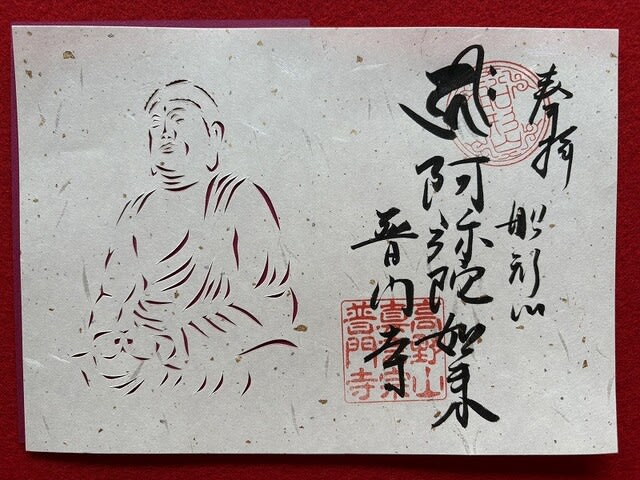 奉拝
船形山
阿弥陀如来
普門寺
高野山
真言宗
普門寺